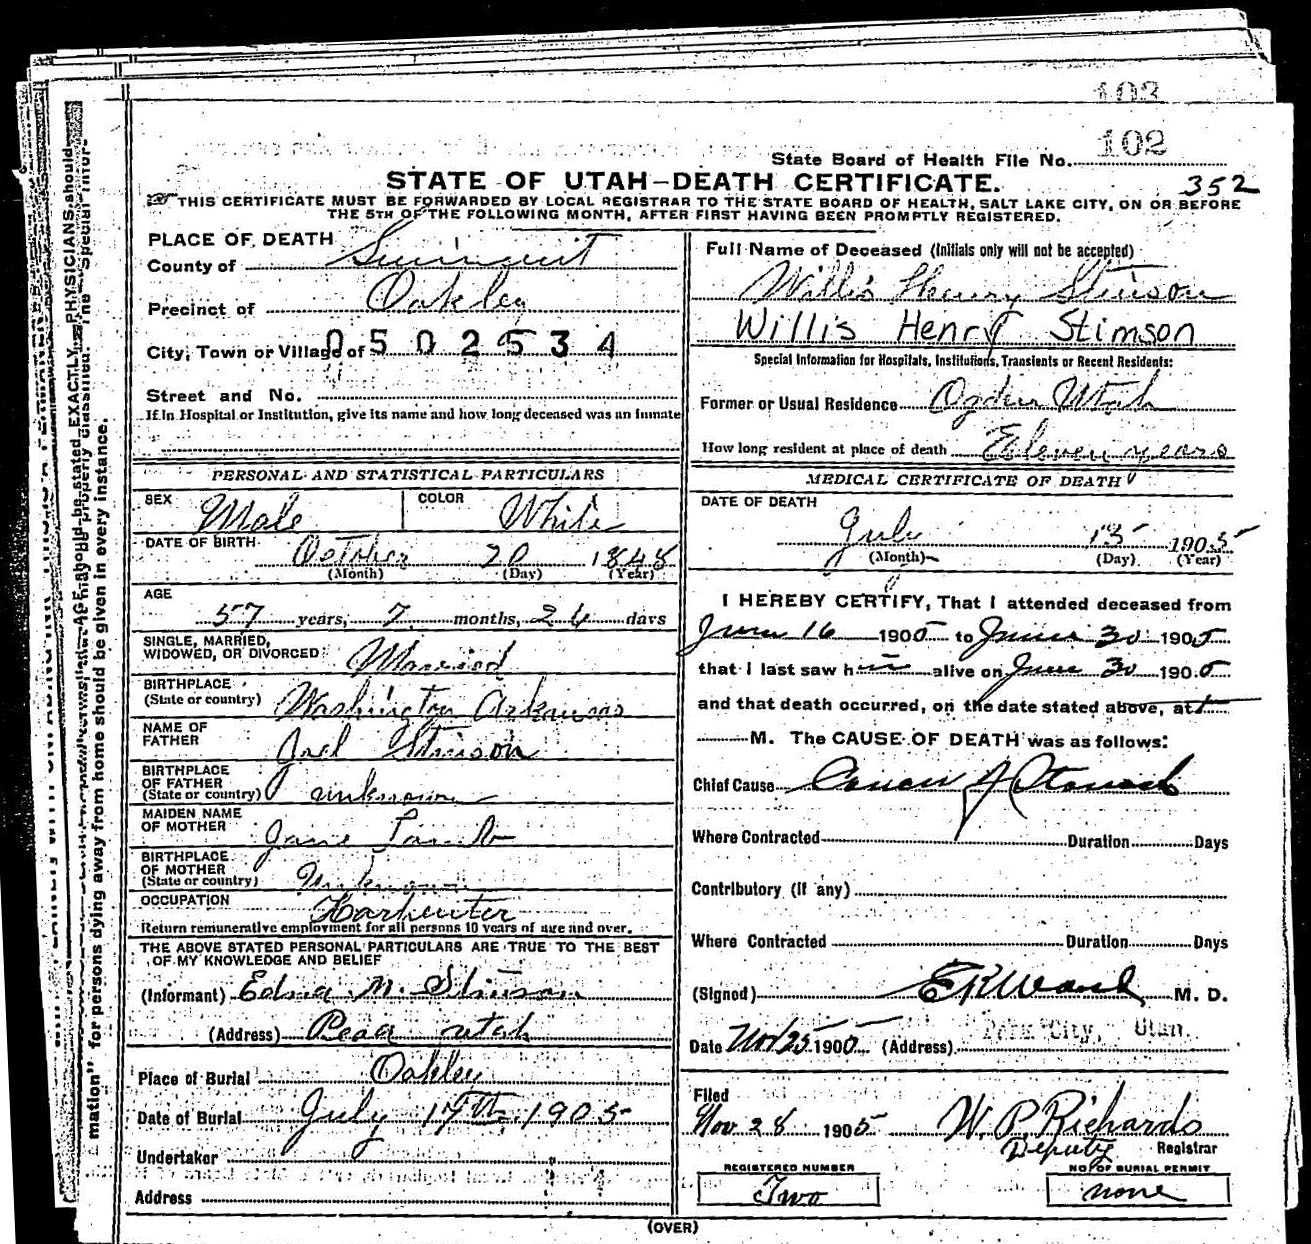 103
State Board of Health File No. 102
STATE OF UTAH—DEATH CERTIFICATE.
352
THIS CERTIFICATE MUST BE FORWARDED BY LOCAL REGISTRAR TO THE STATE BOARD OF HEALTH, SALT LAKE CITY, ON OR BEFORE
THE 5TH OF THE FOLLOWING MONTH, AFTER FIRST HAVING BEEN PROMPTLY REGISTERED.
PLACE OF DEATH
County of Summit
Precinct of Oakley
City, Town or Village of 0502534
Street and No.
If in Hospital or Institution, give its name and how long deceased was an inmate
PERSONAL AND STATISTICAL PARTICULARS
SEX Male
COLOR White
DATE OF BIRTH October 20 1848
(Month) (Day) (Year)
AGE
57 years, 7 months, 24 days
SINGLE, MARRIED,
WIDOWED, OR DIVORCED: Married
BIRTHPLACE
(State or country) Washington Arkansas
NAME OF
FATHER Joel Stimson
BIRTHPLACE
OF FATHER
(State or country) unknown
MAIDEN NAME
OF MOTHER Jane Lamb
BIRTHPLACE
OF MOTHER
(State or country) Unknown
OCCUPATION Karpenter
Return remunerative employment for all persons 10 years of age and over.
THE ABOVE STATED PERSONAL PARTICULARS ARE TRUE TO THE BEST
OF MY KNOWLEDGE AND BELIEF
(Informant) Edna M. Stinson
(Address) Peoa utah
Place of Burial Oakley
Date of Burial July 17th 1905
Undertaker
Address
Full Name of Deceased (Initials only will not be accepted)
Willis Henry Stinson
Willis Henry Stimson
Special Information for Hospitals, Institutions, Transients or Recent Residents:
Former or Usual Residence Ogden Utah
How long resident at place of death Eleven years
MEDICAL CERTIFICATE OF DEATH
DATE OF DEATH
July 15 1905
(Month) (Day) (Year)
I HEREBY CERTIFY, That I attended deceased from
June 16 1905 to June 30 1905
that I last saw him alive on June 30 1905
and that death occurred, on the date stated above, at
M. The CAUSE OF DEATH was as follows:
Chief Cause Cancer of Stomach
Where Contracted Duration Days
Contributory (if any)
Where Contracted Duration Days
(Signed) E R Ward M. D.
Date Nov 25 1905 (Address) Park City, Utah.
Filed
Nov 28 1905 W. P. Richards
Deputy Registrar
REGISTERED NUMBER
Two
NO. OF BURIAL PERMIT
none
(OVER)
PHYSICIANS should
mation" for persons dying away from home should be given in every instance.